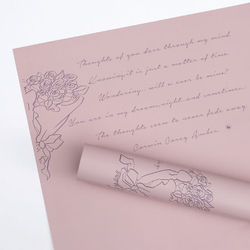 Thoughts of you dove through my mind
Knowing it is just a matter of time
Wondering, will u ever be mine?
You are in my dreams, night, and sometimes
The thoughts seem to never fade away